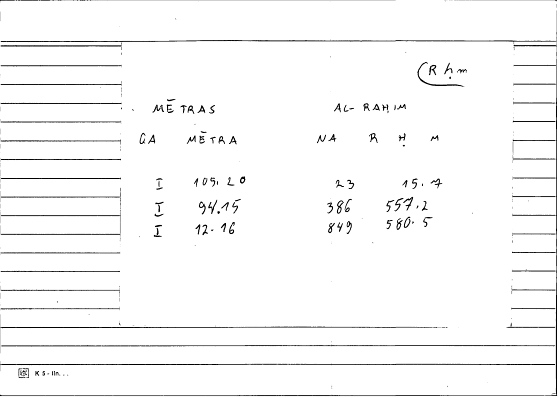 (R ḥm
MĒTRAS AL-RAḤIM
GA MĒTRA NA R Ḥ M
I 105.20 23 15.7
I 94.15 386 557.2
I 12.16 849 580.5
K 5-lin...